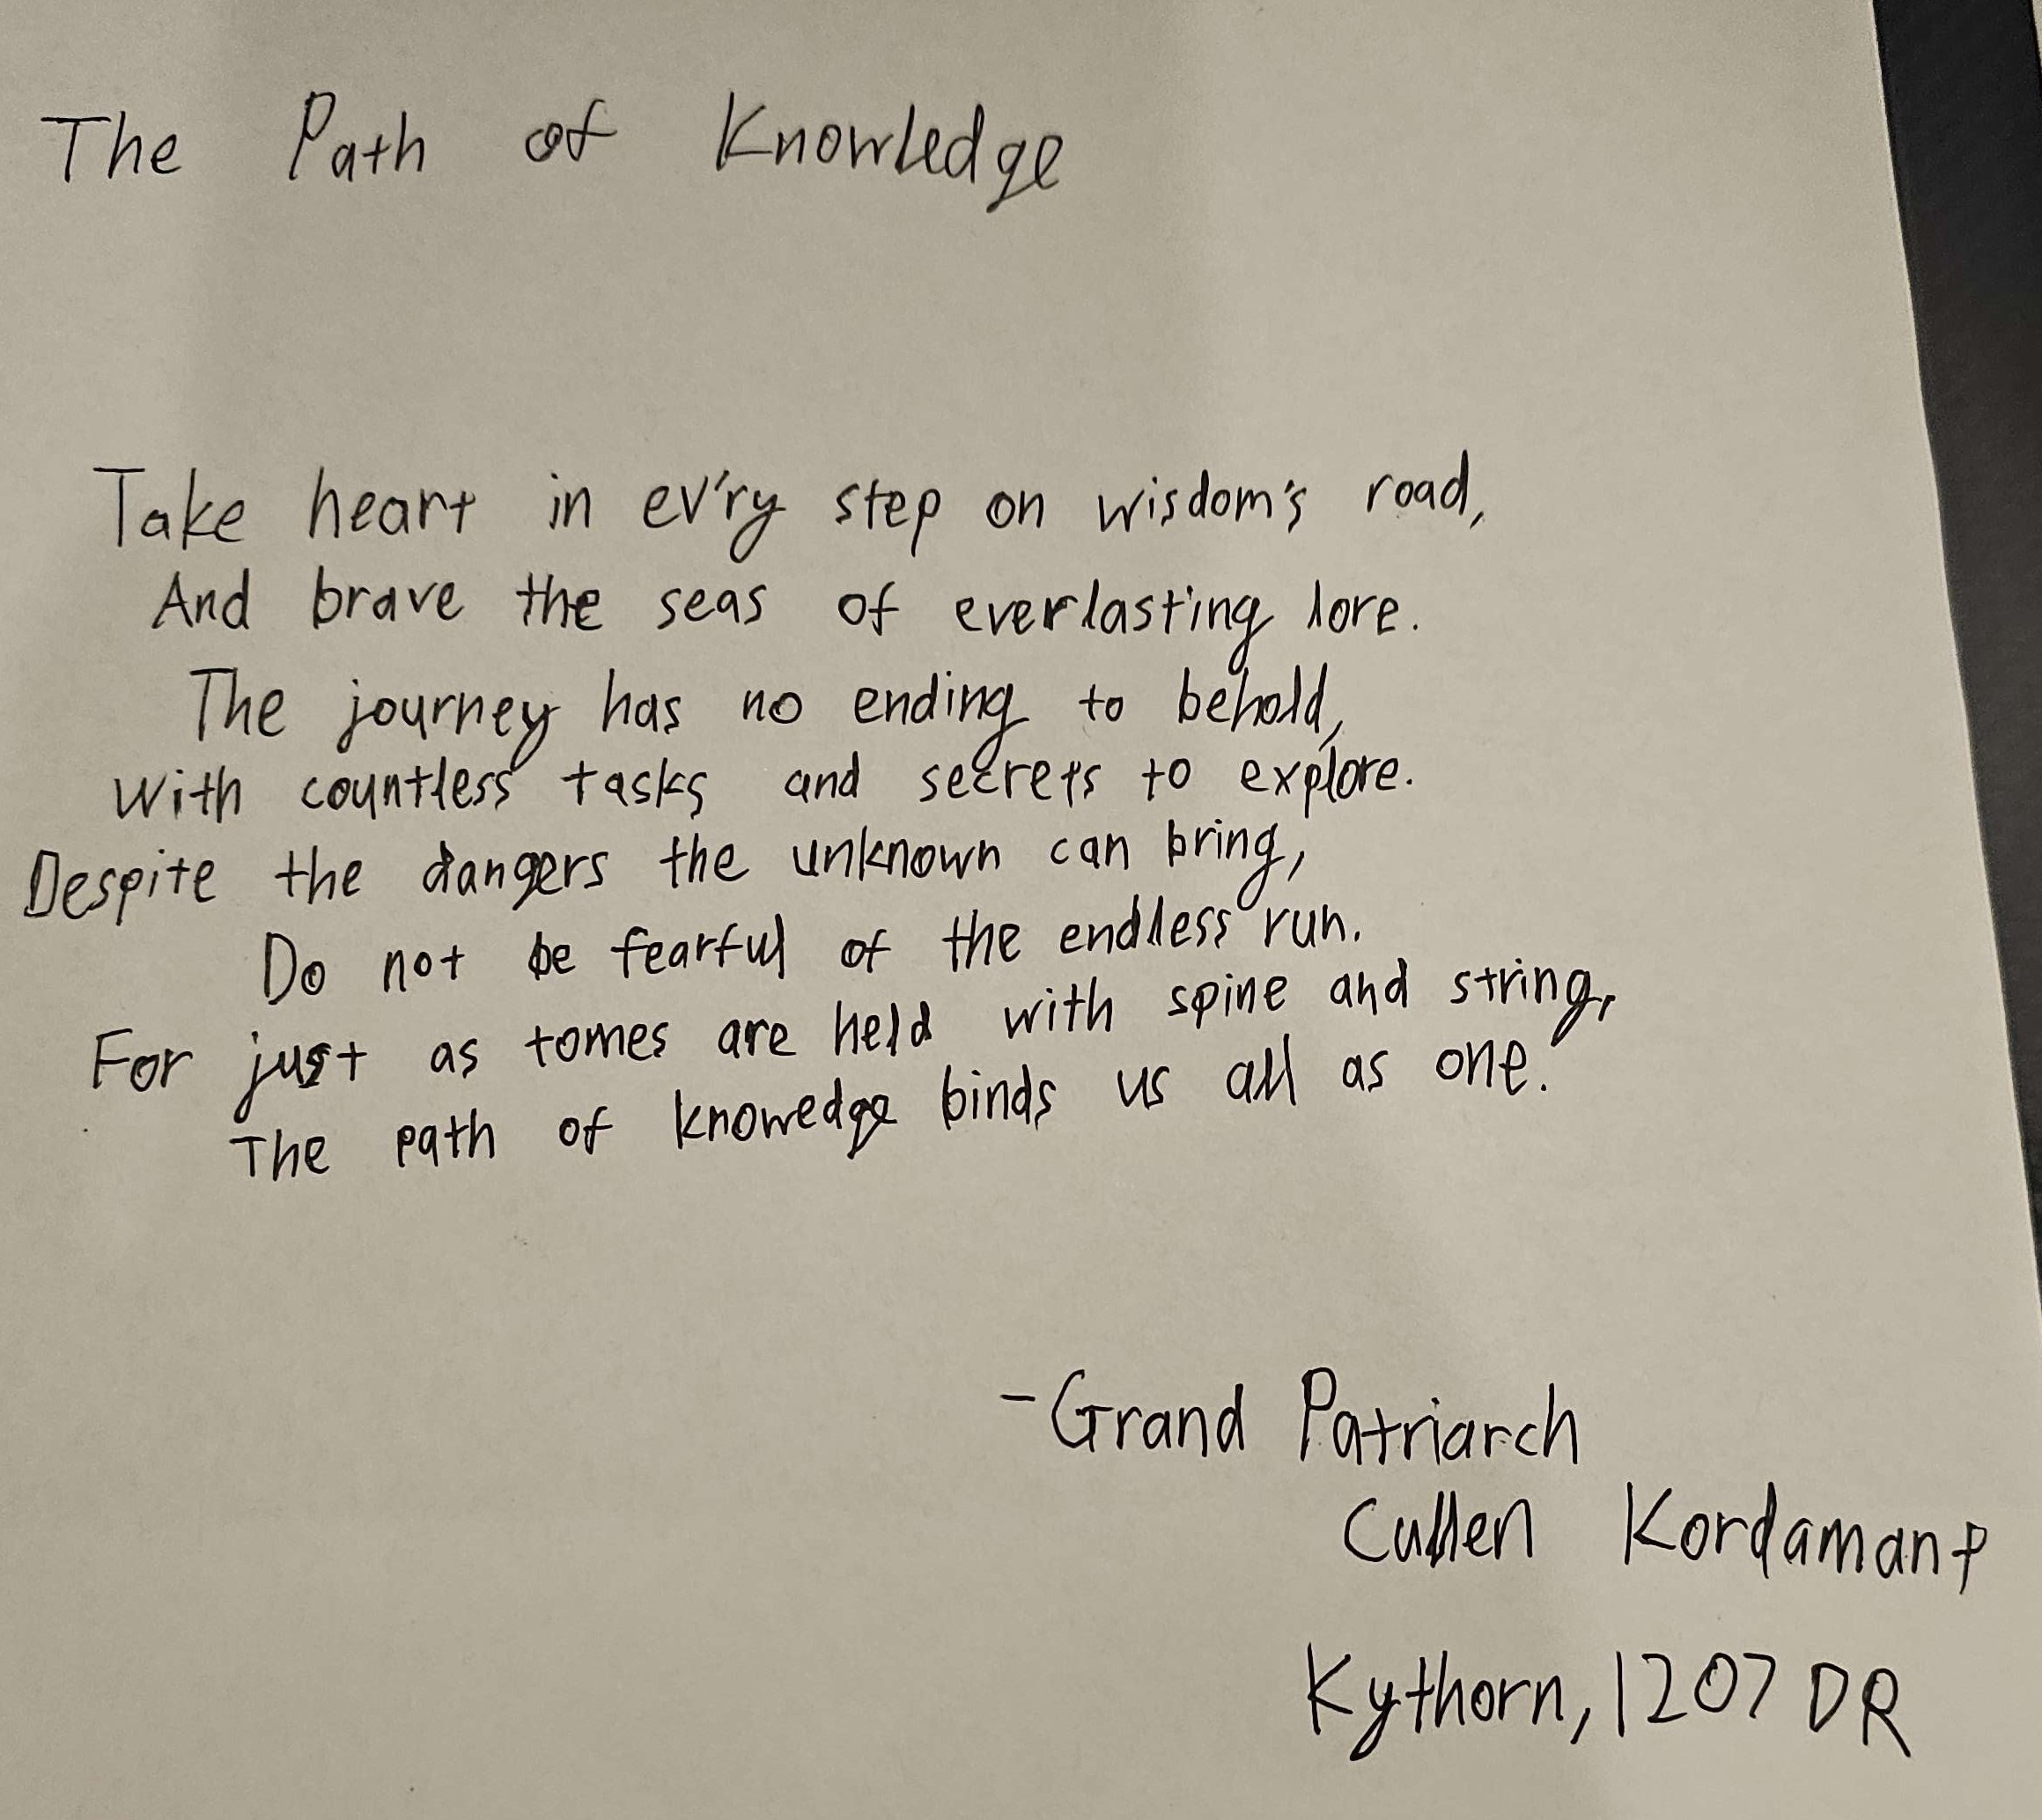 The Path of Knowledge
Take heart in ev'ry step on wisdom's road,
And brave the seas of everlasting lore.
The journey has no ending to behold,
With countless tasks and secrets to explore.
Despite the dangers the unknown can bring,
Do not be fearful of the endless run.
For just as tomes are held with spine and string,
The path of knowedge binds us all as one.
-Grand Patriarch
Cullen Kordamant
Kythorn, 1207 DR